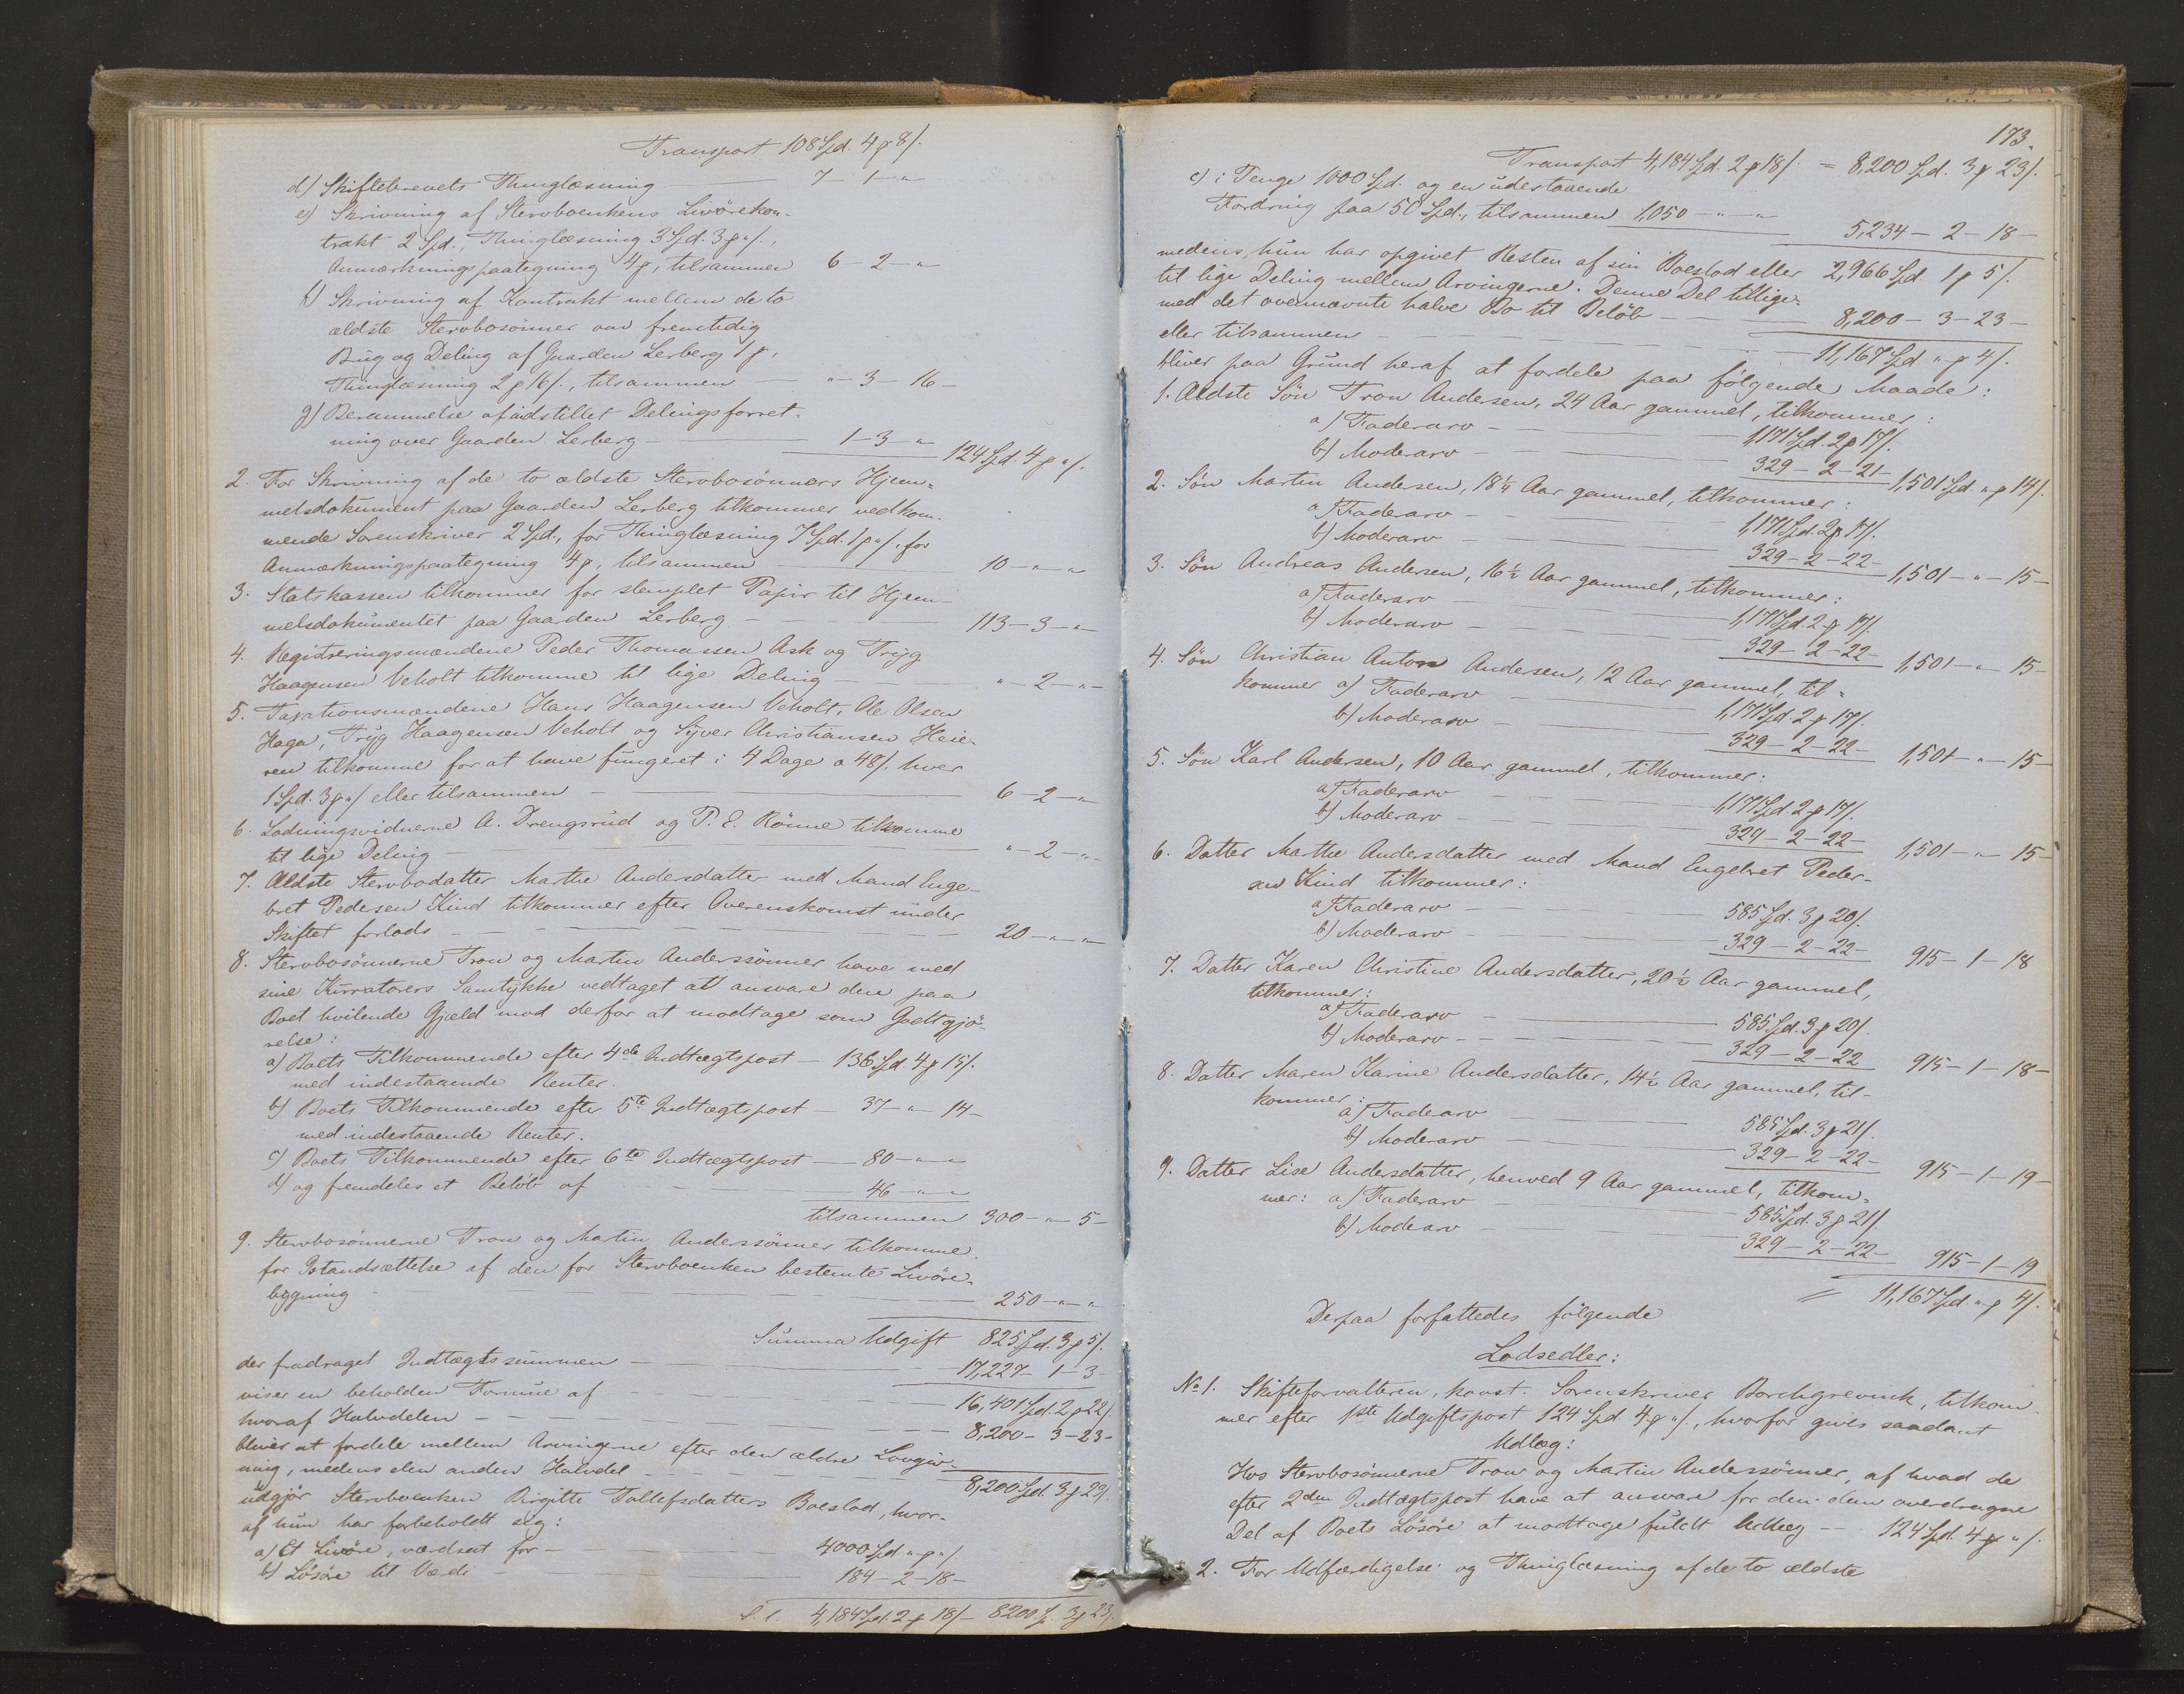 Transport 108 Spd. 4 ϸ 8 /.
d) Skiftebrevets Thinglæsning — 7 - 1 - "
e) Skrivning af Stervboenkens Livörekon-
trakt 2 Spd., Thinglæsning 3 Spd. 3 ϸ " /.,
Anmærkningspaategning 4 ϸ, tilsammen 6 - 2 - "
f) Skrivning af Kontrakt mellem de to
ældste Stervbosönner om fremtidig
Brug og Deling af Gaarden Lerberg 1 ϸ,
Thinglæsning 2 ϸ 16 /., tilsammen — " - 3 - 16 -
g) Berammelse af udstillet Delingsforret-
ning over Gaarden Lerberg — 1 - 3 - " 124 Spd. 4 ϸ " /.
2. For Skrivning af de to ældste Stervbosönners Hjem-
melsdokument paa Gaarden Lerberg tilkommer vedkom-
mende Sorenskriver 2 Spd., for Thinglæsning 7 Spd. 1 ϸ " /., for
Anmærkningspaategning 4 ϸ, tilsammen — 10 - " - "
3. Statskassen tilkommer for stemplet Papir til Hjem-
melsdokumentet paa Gaarden Lerberg — 113 - 3 - " -
4. Registreringsmændene Peder Thomassen Ask og Tryg
Haagensen Veholt tilkomme til lige Deling — " - 2 - " -
5. Taxationsmændene Hans Haagensen Veholt, Ole Olsen
Haga, Tryg Haagensen Veholt og Syver Christiansen Heie-
ren tilkomme for at have fungeret i 4 Dage a 48 /. hver
1 Spd. 3 ϸ " / eller tilsammen — 6 - 2 - "
6. Lodningsvidnerne A. Drengsrud og P. E. Rönne tilkomme
til lige Deling — " - 2 - " -
7. Ældste Stervbodatter Marthe Andersdatter med Mand Enge-
bret Pedersen Kind tilkommer efter Overenskomst under
Skiftet forlods — 20 - " - "
8. Stervbosönnerne Tron og Martin Anderssönner have med
sine Kurratorers Samtykke vedtaget at ansvare den paa
Boet hvilende Gjæld mod derfor at modtage som Godtgjö-
relse:
a) Boets Tilkommende efter 4de Indtægtspost — 136 Spd. 4 ϸ 15 /.
med indestaaende Renter.
b) Boets Tilkommende efter 5te Indtægtspost — 37 - " - 14 -
med indestaaende Renter.
c) Boets Tilkommende efter 6te Indtægtspost — 80 - " - "
d) og fremdeles et Belöb af — 46 - " - "
tilsammen 300 - " - 5 -
9. Stervbosönnerne Tron og Martin Anderssönner tilkomme
for Istandsættelse af den for Stervboenken bestemte Livöre-
bygning — 250 - " - "
Summa Udgift 825 Spd. 3 ϸ 5 /.
der fradraget Indtægtssummen — 17,227 - 1 - 3 -
viser en beholden Formue af — 16,401 Spd. 2 ϸ 22 /.
hvoraf Halvdelen — 8,200 - 3 - 23 -
bliver at fordele mellem Arvingerne efter den ældre Lovgiv-
ning, medens den anden Halvdel — 8,200 Spd. 3 ϸ 23 /.
udgjör Stervboenken Birgitte Tollefsdatters Boeslod, hvor-
af hun har forbeholdt sig:
a) Et Livöre, værdsat for — 4000 Spd " ϸ " /
b) Lösöre til Værdi — 184 - 2 - 18 -
4,184 Spd. 2 ϸ 18 / - 8200 Sp. 3 ϸ 23 /.
173.
Transport 4,184 Spd. 2 ϸ 18 /. = 8,200 Spd. 3 ϸ 23 /.
c) i Penge 1000 Spd. og en udestaaende
Fordring paa 50 Spd., tilsammen 1,050 - " - " 5,234 - 2 - 18 -
medens hun har opgivet Resten af sin Boeslod eller 2,966 Spd. 1 ϸ 5 /.
til lige Deling mellem Arvingerne. Denne Del tillige-
med det ovennævnte halve Bo til Belöb — 8,200 - 3 - 23 -
eller tilsammen — 11,167 Spd " ϸ 4 /.
bliver paa Grund heraf at fordele paa følgende Maade:
1. Ældste Sön Tron Andersen, 24 Aar gammel, tilkommer:
a) Faderarv — 1,171 Spd. 2 ϸ 17 /.
b) Moderarv — 329 - 2 - 21 - 1,501 Spd. " ϸ 14 /.
2. Sön Martin Andersen, 18 1/4 Aar gammel, tilkommer:
a) Faderarv — 1,171 Spd. 2 ϸ 17 /.
b) Moderarv — 329 - 2 - 22 - 1,501 - " - 15 -
3. Sön Andreas Andersen, 16 1/2 Aar gammel, tilkommer:
a) Faderarv — 1,171 Spd. 2 ϸ 17 /.
b) Moderarv — 329 - 2 - 22 - 1,501 - " - 15 -
4. Sön Christian Anton Andersen, 12 Aar gammel, til-
kommer a) Faderarv — 1,171 Spd. 2 ϸ 17 /.
b) Moderarv — 329 - 2 - 22 - 1,501 - " - 15 -
5. Sön Karl Andersen, 10 Aar gammel, tilkommer:
a) Faderarv — 1,171 Spd. 2 ϸ 17 /.
b) Moderarv — 329 - 2 - 22 - 1,501 - " - 15 -
6. Datter Marthe Andersdatter med Mand Engebret Peder-
sen Kind tilkommer:
a) Faderarv — 585 Spd. 3 ϸ 20 /.
b) Moderarv — 329 - 2 - 22 - 915 - 1 - 18
7. Datter Karen Christine Andersdatter, 20 1/2 Aar gammel,
tilkommer:
a) Faderarv — 585 Spd. 3 ϸ 20 /.
b) Moderarv — 329 - 2 - 22 915 - 1 - 18 -
8. Datter Maren Karine Andersdatter, 14 1/2 Aar gammel, til-
kommer:
a) Faderarv — 585 Spd. 3 ϸ 21 /.
b) Moderarv — 329 - 2 - 22 - 915 - 1 - 19 -
9. Datter Lise Andersdatter, henved 9 Aar gammel, tilkom-
mer: a) Faderarv — 585 Spd. 3 ϸ 21 /.
b) Moderarv — 329 - 2 - 22 - 915 - 1 - 19
= 11,167 Spd. " ϸ 4 /.
Derpaa forfattedes fölgende
Lodsedler:
No 1. Skifteforvalteren, konst. Sorenskriver Borchgrevink, tilkom-
mer efter 1ste Udgiftspost 124 Spd. 4 ϸ " /., hvorfor gives saadant
Udlæg:
Hos Stervbosönnerne Tron og Martin Anderssönner, af hvad de
efter 2den Indtægtspost have at ansvare for den dem overdragne
Del af Boets Lösöre at modtage fuldt Udlæg — 124 Spd. 4 ϸ " /.
2. For Udfærdigelse og Thinglæsning af de to ældste